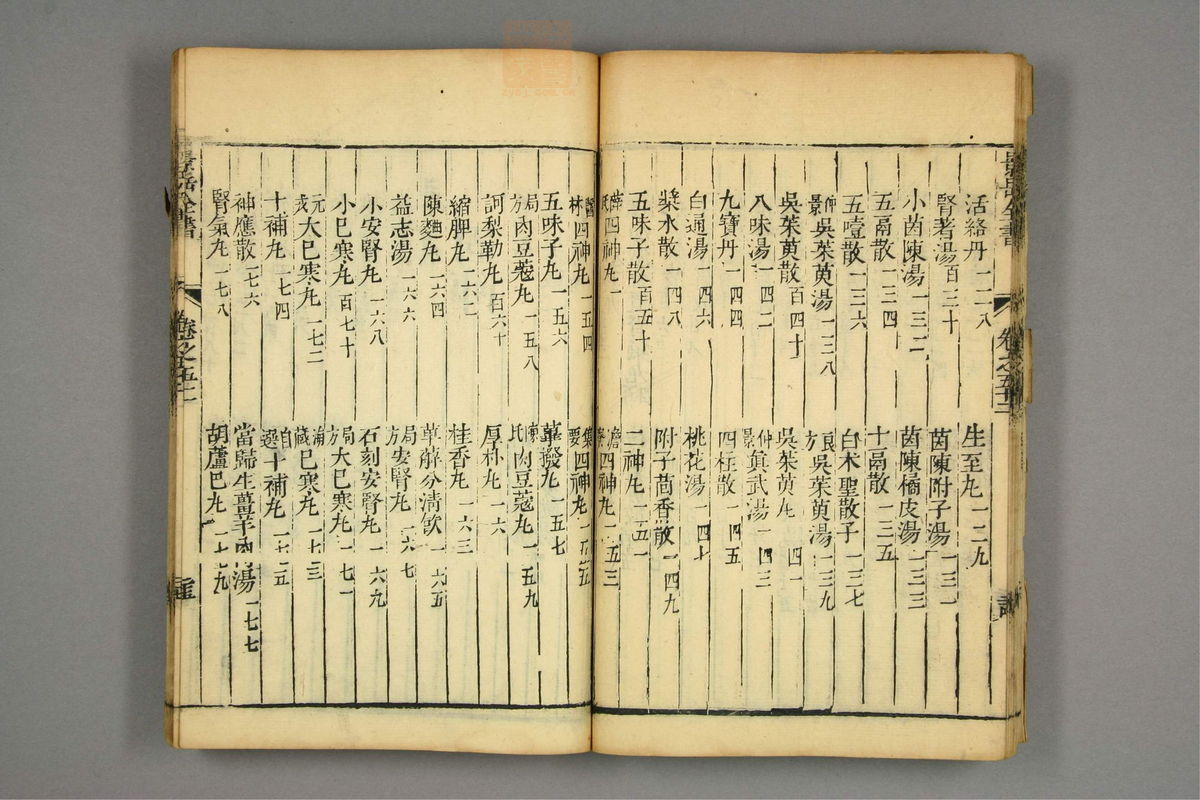 活絡丹一二八 生至丸一二九
腎著湯百三十 茵陳附子湯一三一
小茵陳湯一三二 茵陳橘皮湯一三三
五膈散一三四 十膈散一三五
五噎散一三六 白朮聖散子一三七
仲景吳茱萸湯一三八 良方吳茱萸湯一三九
吳茱萸散百四十 吳茱萸丸 四一
八味湯一四二 仲景真武湯一四三
九寶丹一四四 四柱散一四五
白通湯一四六 桃花湯一四七
漿水散一四八 附子茴香散一四九
五味子散百五十 二神丸一五一
薛氏四神丸一 澹寮四神丸一五三
醫林四神丸一五四 集要四神丸一五五
五味子丸一五六 蓽撥丸一五七
局方肉豆蔻丸一五八 陳氏肉豆蔻丸一五九
訶梨勒丸百六十 厚朴丸一六
縮脾丸一六二 桂香丸一六三
陳麯丸一六四 萆薢分清飲一六五
益志湯一六六 局方安腎丸一六七
小安腎丸一六八 石刻安腎丸一六九
小巳寒丸百七十 局方大巳寒丸一七一
元戎大巳寒丸一七二 海藏巳寒丸一七三
十補丸一七四 自選十補丸一七五
神應散一七六 當歸生薑羊肉湯一七七
腎氣丸一七八 胡蘆巴丸一七九
卷之五十二